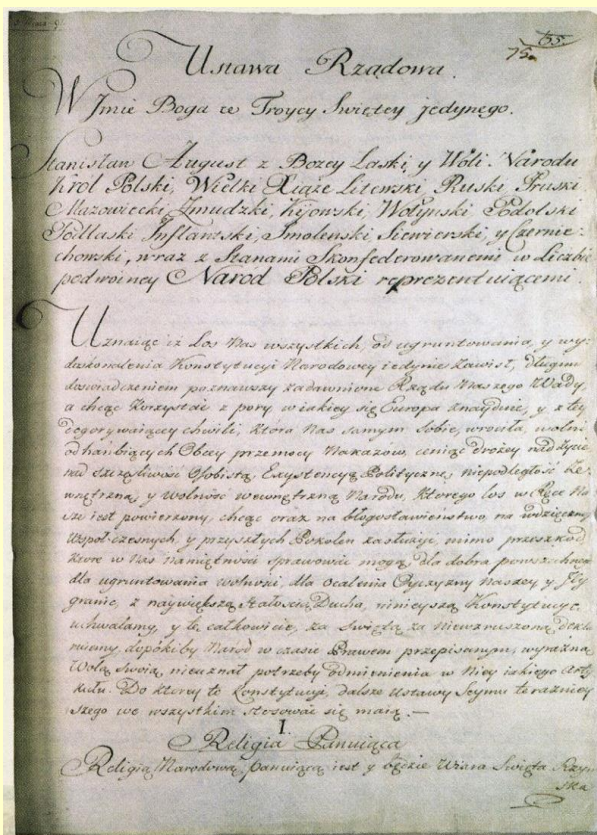 65.
75.
Ustawa Rządowa.
W Jmie Boga w Troycy Swiętey jedynego.
Stanisław August z Bozey Łaski, y Woli Narodu
Krol Polski, Wielki Xiąże Litewski, Ruski Pruski
Mazowiecki, Zmudzki, Kijowski, Wołynski Podolski
Podlaski Inflantski, Smolenski Siewierski, y Czernie-
chowski, wraz z Stanami Skonfederowanemi w Liczbie
podwoiney Narod Polski reprezentuiącemi.
Uznaiąc iż Los Nas wszystkich, od ugruntowania, y wy-
doskonalenia Konstytucyi Narodowey iedynie zawisł, długim
doświadczeniem poznawszy zadawnione Rządu Naszego Wady,
a chcąc korzystać z pory, w iakiey się Europa znayduie, y z tey
dogorywaiącey chwili, ktora Nas samym Sobie, wrociła, wolni
od hańbiących Obcey przemocy Nakazow, ceniąc drożey nad Życie,
nad szczęśliwość Osobistą, Exystencyą Polityczną, niepodległość ze-
wnętrzną, y wolność wewnętrzną Narodu, ktorego los w Ręce Na-
sze iest powierzony, chcąc oraz na błogosławieństwo, na wdzięczność
Wspołczesnych y przyszłych Pokolen zasłużyć, mimo przeszkod
ktore w Nas namiętności sprawować mogą, dla dobra powszechnego
dla ugruntowania wolności, dla ocalenia Oyczyzny Naszey y Jey
granic, z naywiększą stałością Ducha, ninieyszą Konstytucyę
uchwalamy, y tę całkowicie, za świętą za niewzruszoną, dekla-
ruiemy, dopókiby Narod w czasie Prawem przepisanym, wyraźną
Wolą Swoią, nieuznał potrzeby odmienienia w Niey iakiego Arty-
kułu. Do ktorey to Konstytucyi, dalsze Ustawy Seymu teraźniey-
szego we wszystkim stosować się maią. —
I.
Religia Panuiąca
Religią Narodową panuiącą iest y będzie Wiara Swięta Rzym-
ska